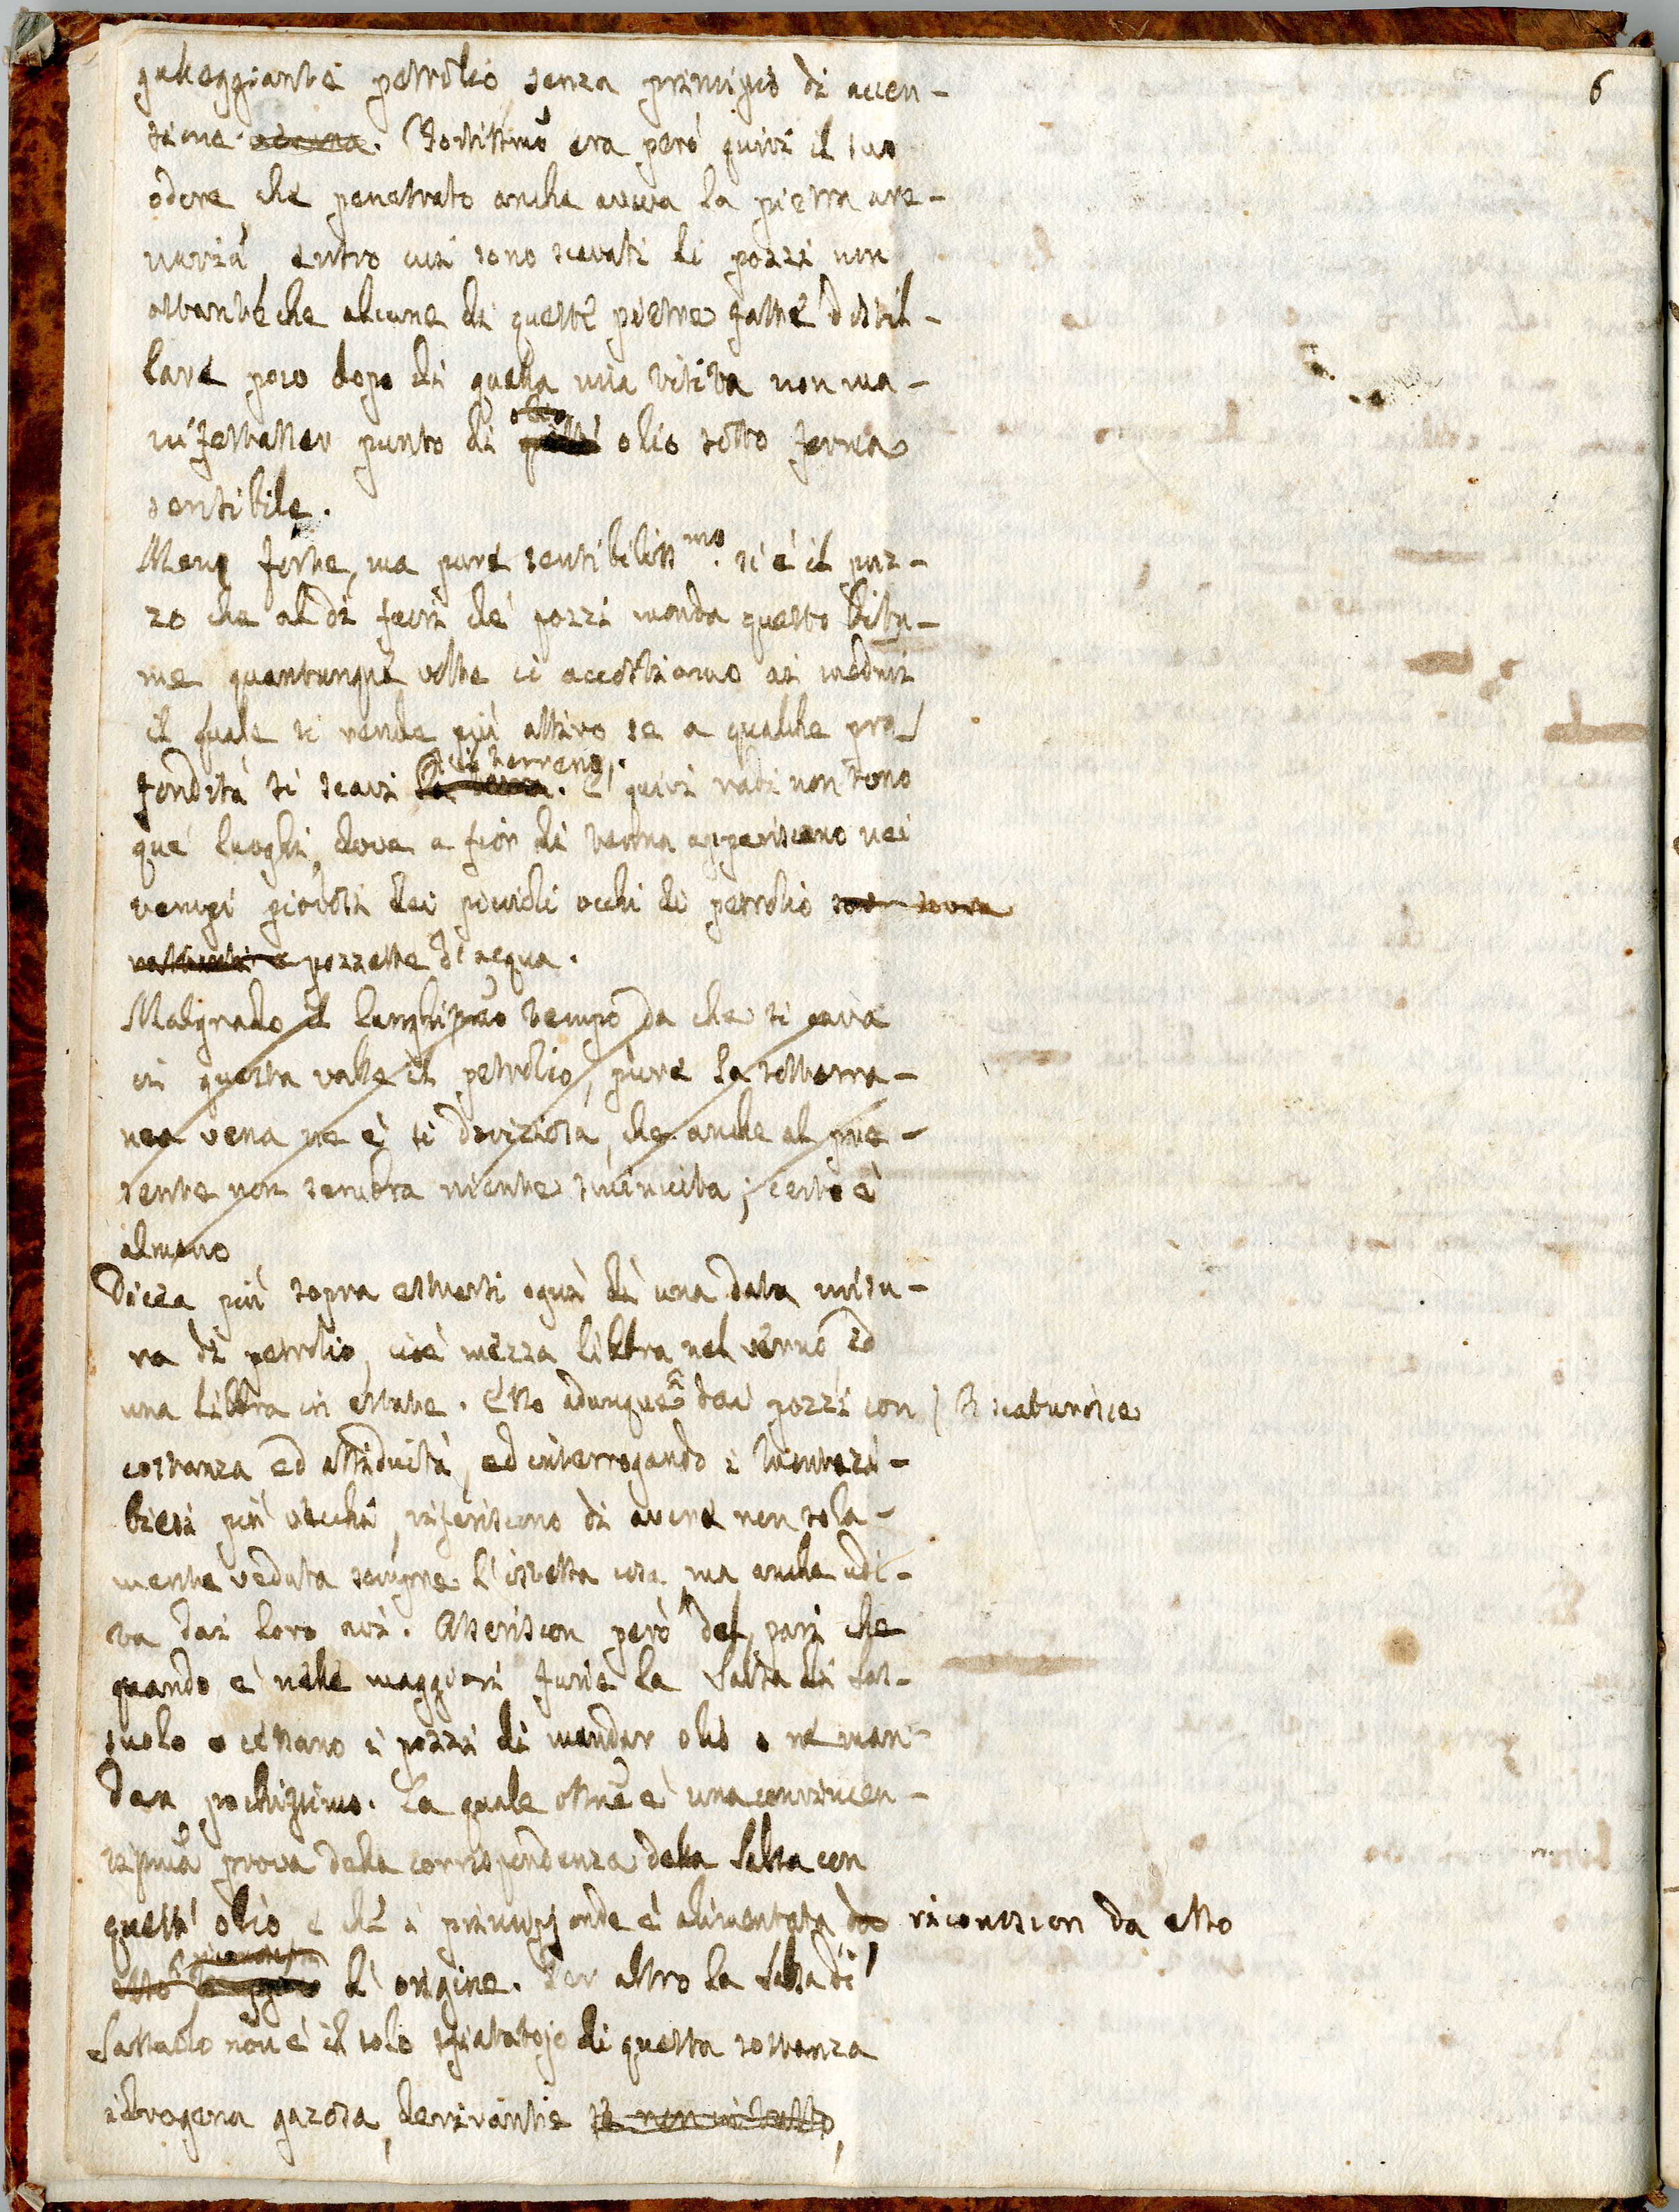 6
galleggiante petrolio senza principio di accen-
sione alcuna. Fortissimo era però quivi il suo
odore, che penetrato anche aveva la pietra are-
naria, entro cui sono scavati li pozzi non
ostante che alcune di queste pietre fatte distil-
lare poco dopo di quella mia visita non ma-
nifestasser punto di olio sotto forma
olio
sensibile.
Meno forte, ma pure sensibiliss.mo si è il puz-
zo che al di fuori de' pozzi manda questo bitu-
me quantunque volte ci accostiamo ai medmi
il quale si rende più attivo se a qualche pro-
fondità si scavi la terra. E quivi radi non sono
il terreno.
que' luoghi, dove a fior di terra appariscono nei
tempi piovosi dei piccioli occhi di petrolio
pozzette di acqua.
Malgrado il lunghissimo tempo da che si cava
in questa valle il petrolio, pure la sotterra-
nea vena ne è sì doviziosa, che anche al pre-
sente non sembra niente sminuita; certo è
almeno
Dicea più sopra estrarsi ogni dì una data misu-
ra di petrolio, cioè mezza libbra nel verno ed
una libbra in estate. Esso adunque dai pozzi con ) scaturisce
costanza ed assiduità, ed interrogando i
più vecchi, riferiscono di avere non sola-
mente veduta sempre l'istessa cosa, ma anche udi-
ta dai loro avi. Asseriscon però del pari che
quando è nelle maggiori furie la Salsa di Sas-
suolo o cessano i pozzi di mandar olio o ne man-
dan pochissimo. La quale osserv.e è una convincen-
tissima prova della corrispondenza della Salsa con
quest' olio e che i principj onde è alimentata riconoscon da esso
esso l'origine. Per altro la Salsa di
Sassuolo non è il solo sfiatatojo di questa sostanza
idrogena gazosa, derivante se non in tutto,